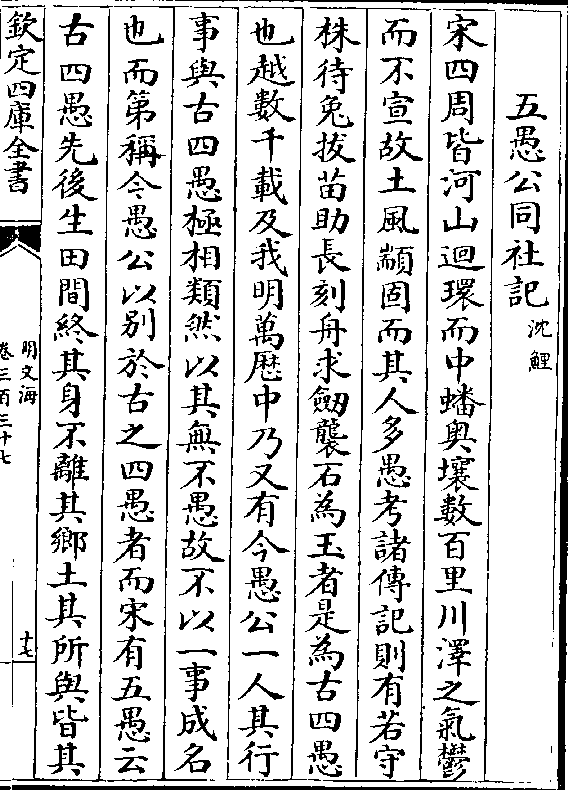 五愚公同社記沈鯉
宋四周皆河山迴環而中蟠奥壤數百里川澤之氣鬱
而不宣故土風顓固而其人多愚考諸傳記則有若守
株待兔拔苗助長刻舟求劔襲石為玉者是為古四愚
也越數千載及我明萬歴中乃又有今愚公一人其行
事與古四愚極相類然以其無不愚故不以一事成名
也而第稱今愚公以别於古之四愚者而宋有五愚云
古四愚先後生田間終其身不離其鄉土其所與皆其
欽定四庫全書
明文海
卷三百三十七
十七